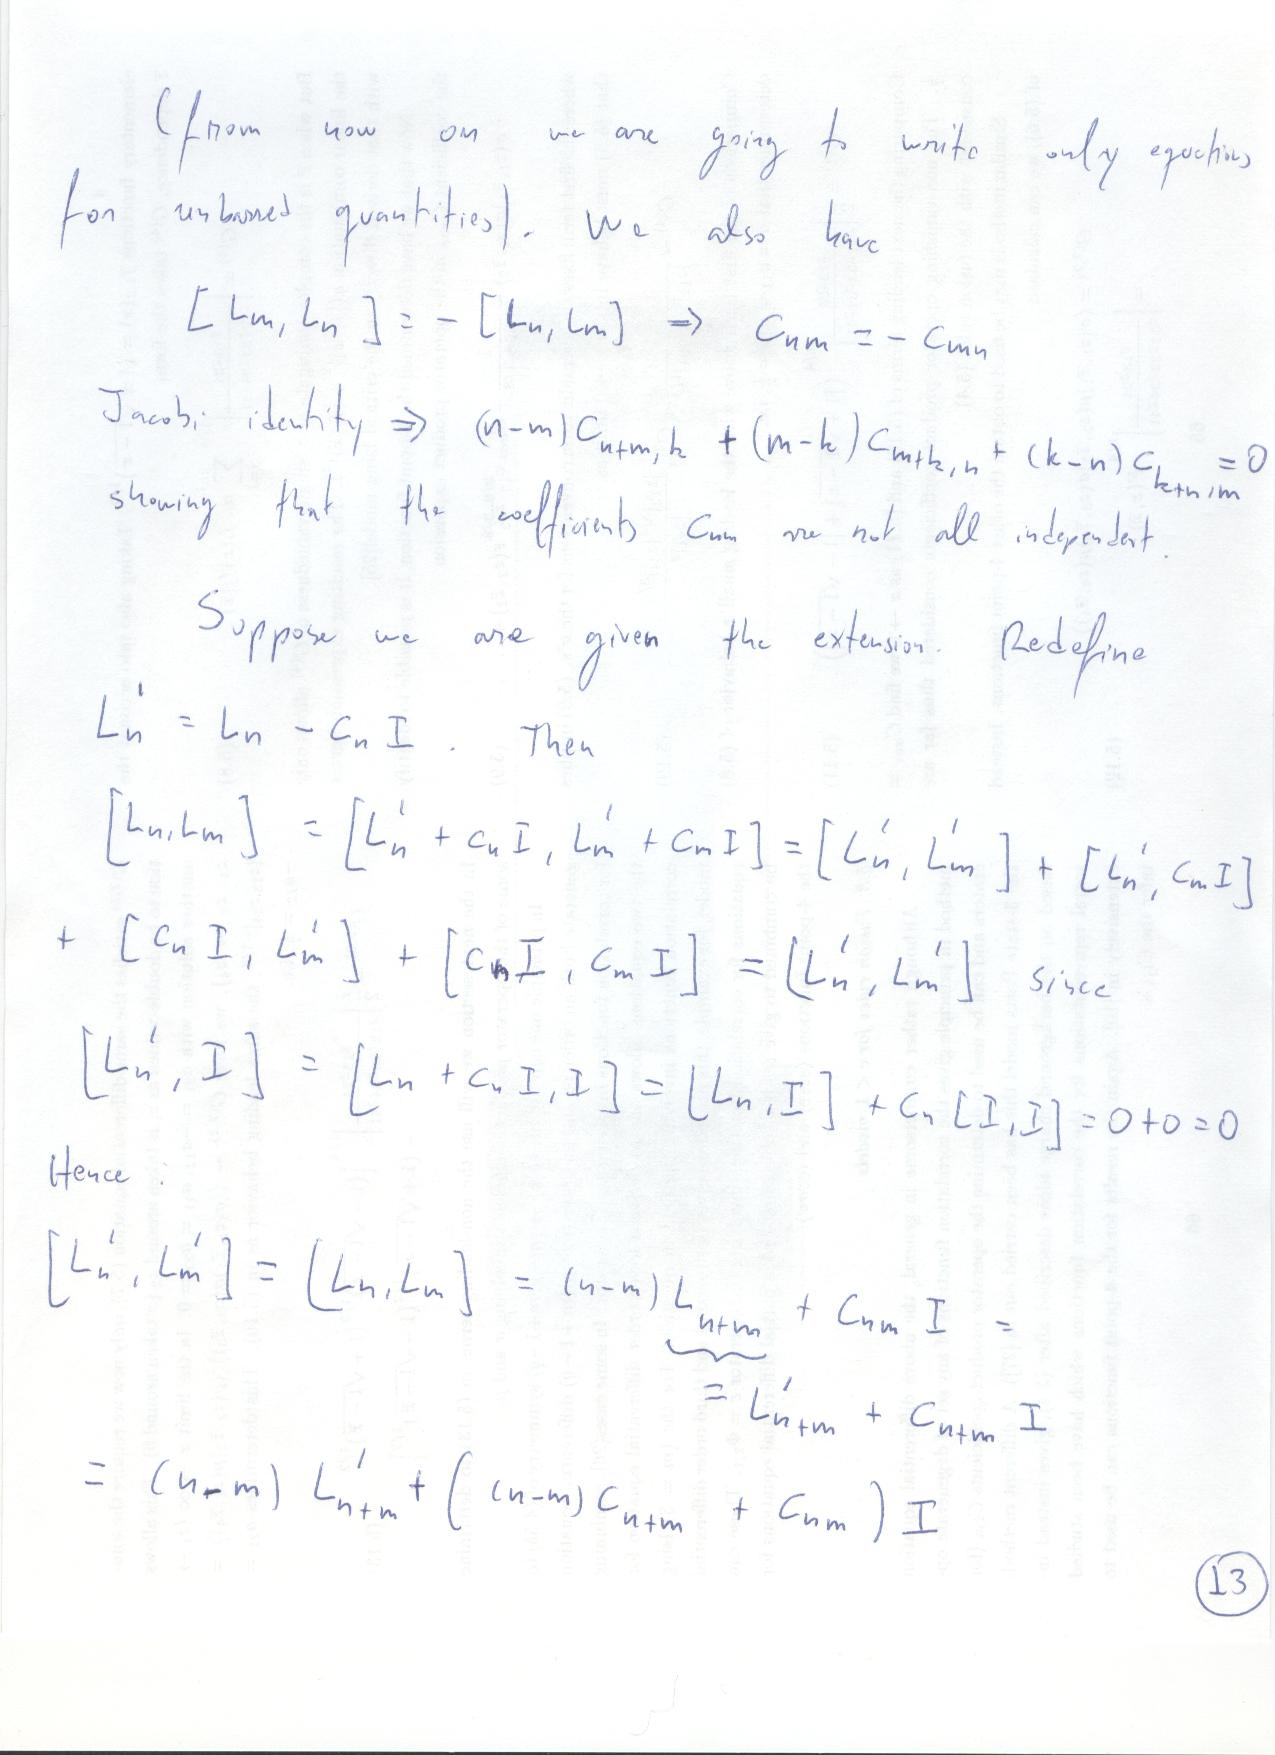 (from now on we are going to write only equations
for unbarred quantities). We also have
[Lm, Ln] = - [Ln, Lm] ⇒ Cnm = - Cmn
Jacobi identity ⇒ (n-m) C_{n+m, k} + (m-k) C_{m+k, n} + (k-n) C_{k+n, m} = 0
showing that the coefficients Cnm are not all independent.
Suppose we are given the extension. Redefine
L'_n = L_n - C_n I . Then
[Ln, Lm] = [L'_n + C_n I, L'_m + C_m I] = [L'_n, L'_m] + [L'_n, C_m I]
+ [C_n I, L'_m] + [C_n I, C_m I] = [L'_n, L'_m] since
[L'_n, I] = [L_n + C_n I, I] = [L_n, I] + C_n [I, I] = 0+0=0
Hence :
[L'_n, L'_m] = [L_n, L_m] = (n-m) L_{n+m} + C_{nm} I =
= L'_{n+m} + C_{n+m} I
= (n-m) L'_{n+m} + ( (n-m) C_{n+m} + C_{nm} ) I
13